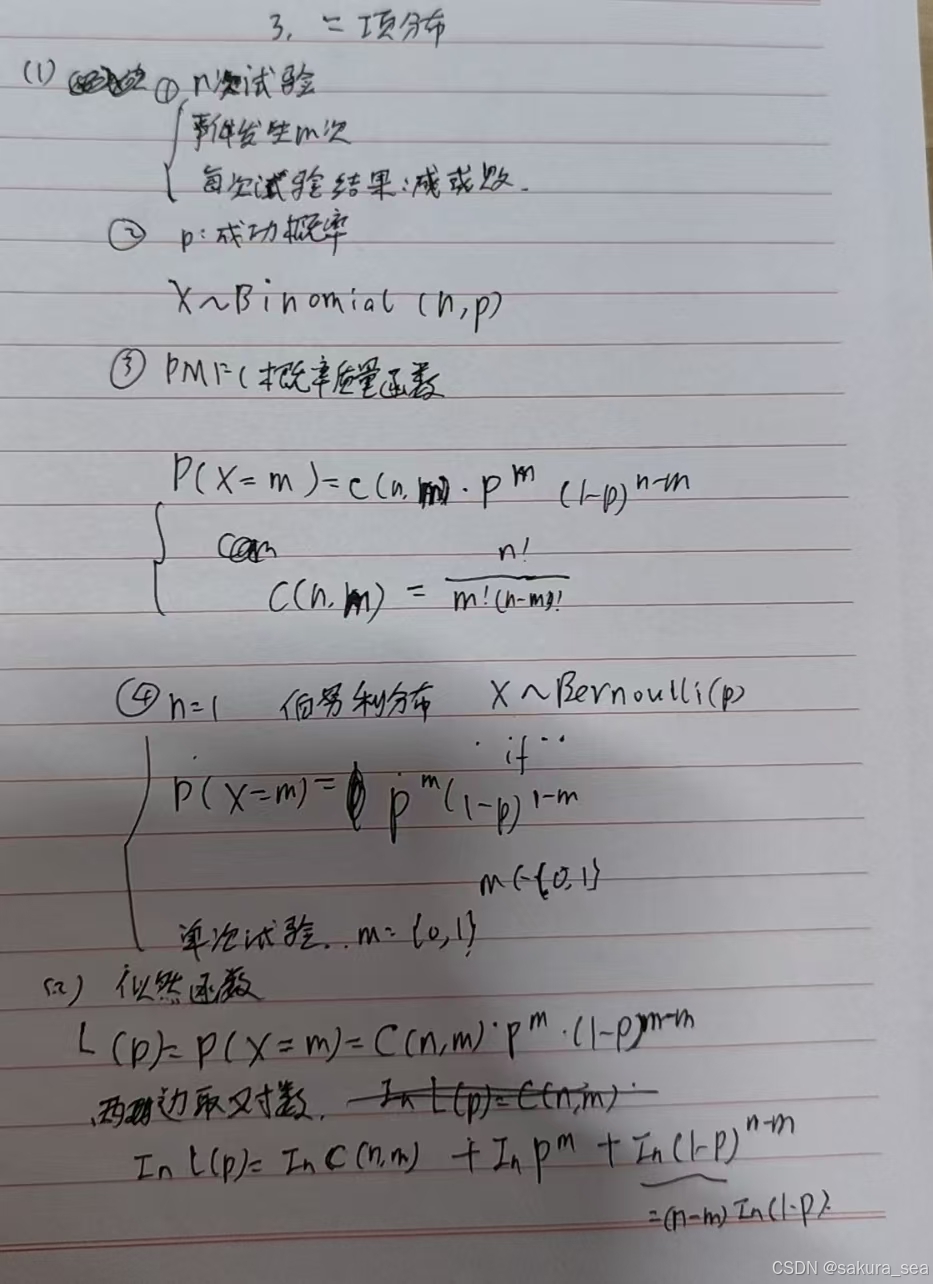 3. 二项分布
(1) ① n次试验
事件发生m次
每次试验结果:成或败.
② p:成功概率
X~Binomial (n,p)
③ PMF(概率质量函数
P(X=m)=C(n,m)·p^m (1-p)^{n-m}
C(n,m) = \frac{n!}{m!(n-m)!}
④ n=1 伯努利分布 X~Bernoulli(p)
if
p(X=m)= p^m(1-p)^{1-m}
m∈{0,1}
单次试验.. m={0,1}
(2) 似然函数
L(p)=P(X=m)=C(n,m)·p^m·(1-p)^{n-m}
两边取对数. In L(p)=C(n,m)
In L(p)= In C(n,m) + In p^m + In(1-p)^{n-m}
=(n-m) In(1-p)
CSDN @sakura_sea